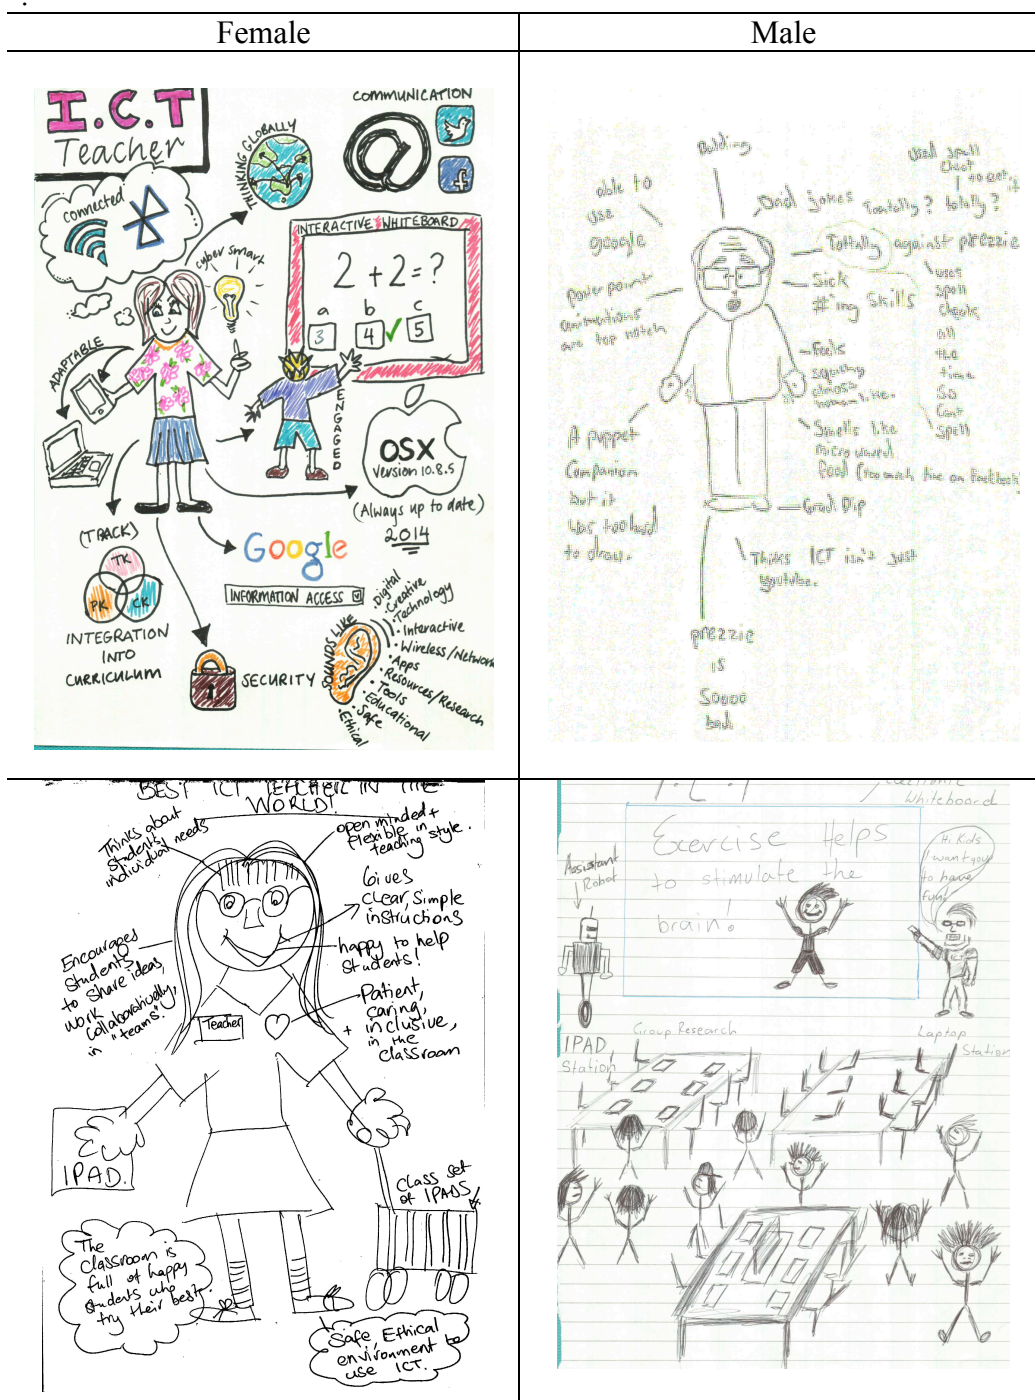 Female
Male
I.C.T
Teacher
connected
THINKING GLOBALLY
COMMUNICATION
@
f
cyber smart
INTERACTIVE WHITEBOARD
2+2=?
a
b
c
3
4
5
ADAPTABLE
ENGAGED
OSX
Version 10.8.5
(Always up to date)
2014
(TPACK)
TK
PK
CK
INTEGRATION
INTO
CURRICULUM
Google
INFORMATION ACCESS
SECURITY
SOUNDS LIKE
• Digital
• Creative
• Technology
• Interactive
• Wireless/Network
• Apps
• Resources/Research
• Tools
• Educational
• Safe
• Ethical
Balding
able to
use
google
powerpoint
animations
are top notch
A puppet
Companion
but it
was too hard
to draw.
Used spell
to get
it
? totally?
Tottally against prezzie
Sick
#'ing Skills
uses
spell
all
the
time
So
Cant
Spell
Feels
Smells like
microwaved
food (too much time on facebook)
Grad Dip
Thinks ICT isn't just
youtube.
prezzie
is
Soooo
bad
BEST ICT TEACHER IN THE
WORLD!
Thinks about
students
individual needs
open minded +
flexible in
teaching style.
Gives
clear, simple
instructions
happy to help
students!
Encourages
students
to share ideas,
work
collaboratively,
in "teams".
Teacher
Patient,
caring,
+ inclusive,
in the
classroom
IPAD.
class set
of IPADS
The
classroom is
full of happy
students who
try their best.
Safe Ethical
environment to
use ICT.
I.C.T
Electronic
Whiteboard
Exercise Helps
to stimulate the
brain!
Assistant
Robot
Hi Kids
I want you
to have
fun!
Group Research
IPAD
Station
Laptop
Station